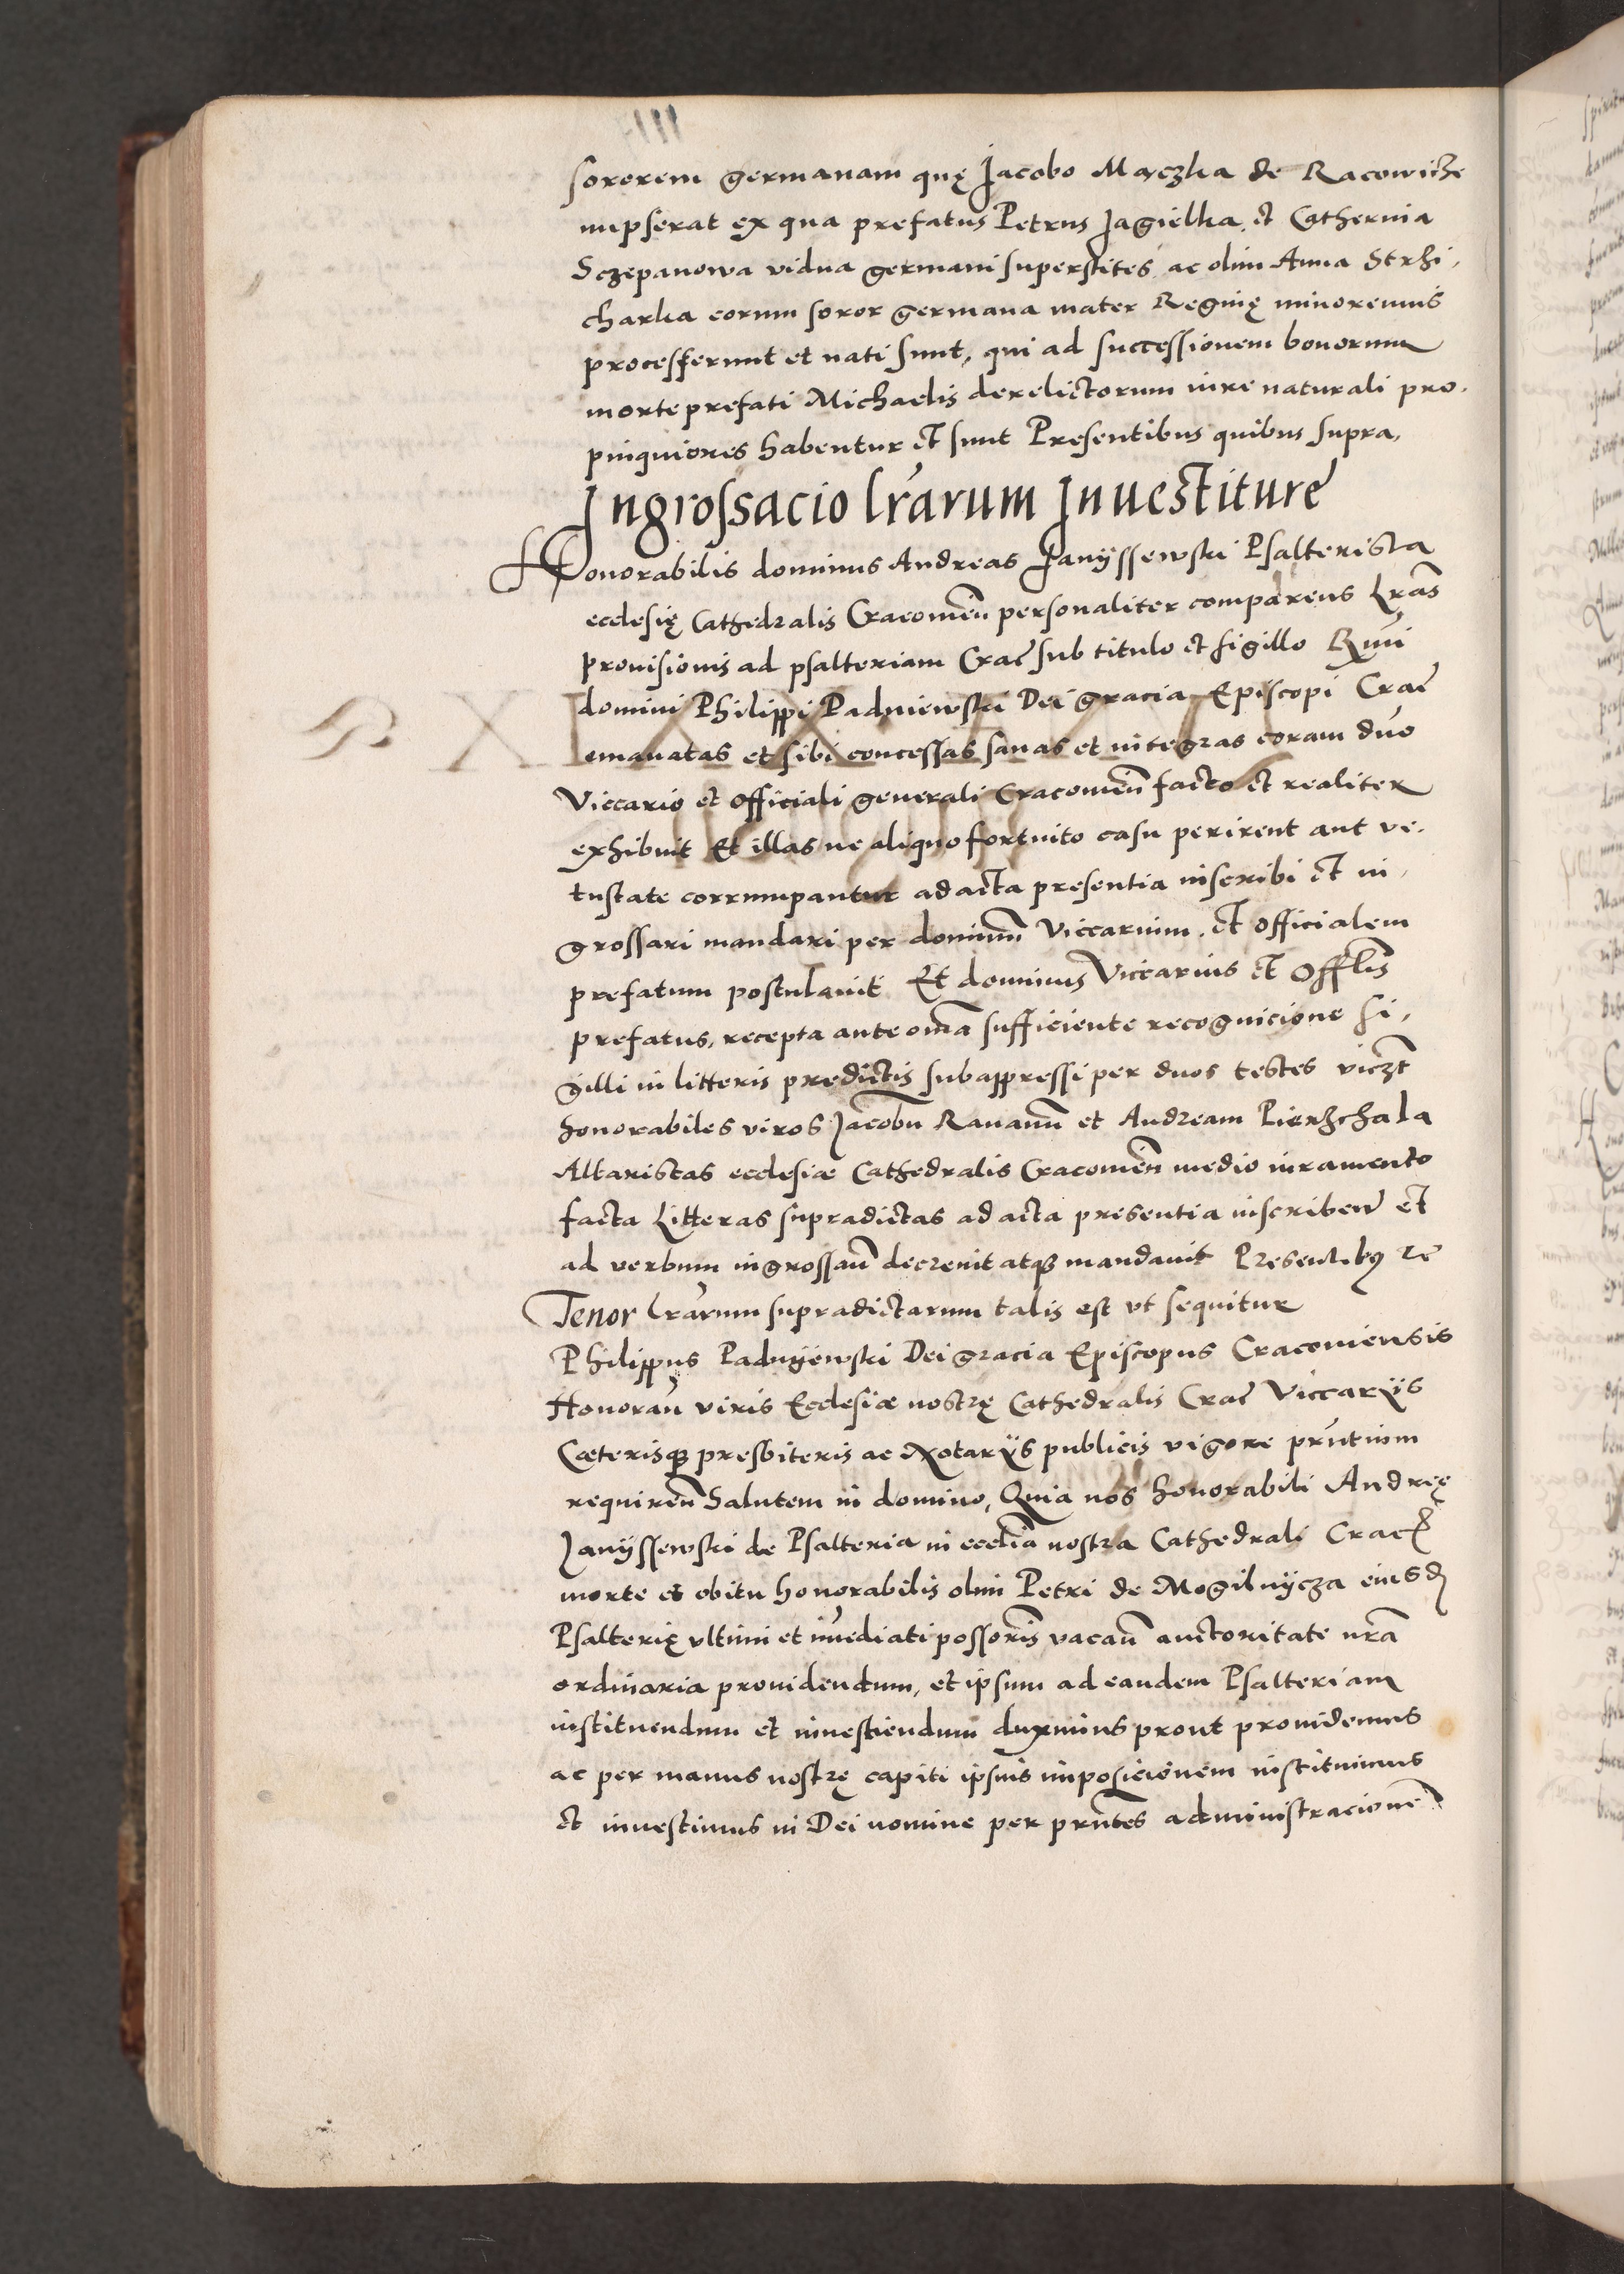 sororem germanam quę Jacobo Maczka de Racowicze
nupserat ex qua prefatus Petrus Jagielka et Catherina
Sczepanowa vidua germani superstites ac olim Anna Strzi,
charka eorum soror germana mater Reginę minorennis
processerunt et nati sunt, qui ad successionem bonorum
morte prefati Michaelis derelictorum iure naturali pro,
pinquiores habentur et sunt Presentibus quibus supra,
Ingrossacio lrarum Inuestiture
Honorabilis dominus Andreas Janÿssewski Psalterista
ecclesię Cathedralis Cracouien personaliter comparens Lras
prouisionis ad psalteriam Crac sub titulo et sigillo Rmi
domini Philippi Padniewski Dei gracia Episcopi Crac
emanatas et sibi concessas sanas et integras coram dno
Viccario et officiali generali Cracouien facto et realiter
exhibuit Et illas ne aliquo fortuito casu perirent aut ve,
tustate corrumpantur ad acta presentia inscribi et in,
grossari mandari per dominum Viccarium et officialem
prefatum postulauit Et dominus Viccarius et Offlis
prefatus, recepta ante oma sufficiente recognicione si,
gilli in litteris predictis subappressi per duos testes viczt
honorabiles viros Jacobu Rauanu et Andream Pierzchala
Altaristas ecclesiæ Cathedralis Cracouien medio iuramento
facta Litteras supradictas ad acta presentia inscriben et
ad verbum ingrossan decreuit atq mandauit Presentibq rc
Tenor lrarum supradictarum talis est vt sequitur
Philippus Padnÿewski Dei gracia Episcopus Cracouiensis
Honoran viris Ecclesiæ nostrę Cathedralis Crac Viccarÿs
Cæterisq presbiteris ac Notarÿs publicis vigore prntium
requiren Salutem in domino, Quia nos honorabili Andreę
Janÿssewski de Psalteria in ecclia nostra Cathedrali Crac
morte et obitu honorabilis olim Petri de Mogilnÿcza eiusd
Psalterię vltimi et imediati possoris vacan auctoritate nra
ordinaria prouidendum, et ipsum ad eandem Psalteriam
instituendum et inuestiendum duximus prout prouidemus
ac per manus nostrę capiti ipsius imposicionem instituimus
et inuestimus in Dei nomine per prntes administracionem